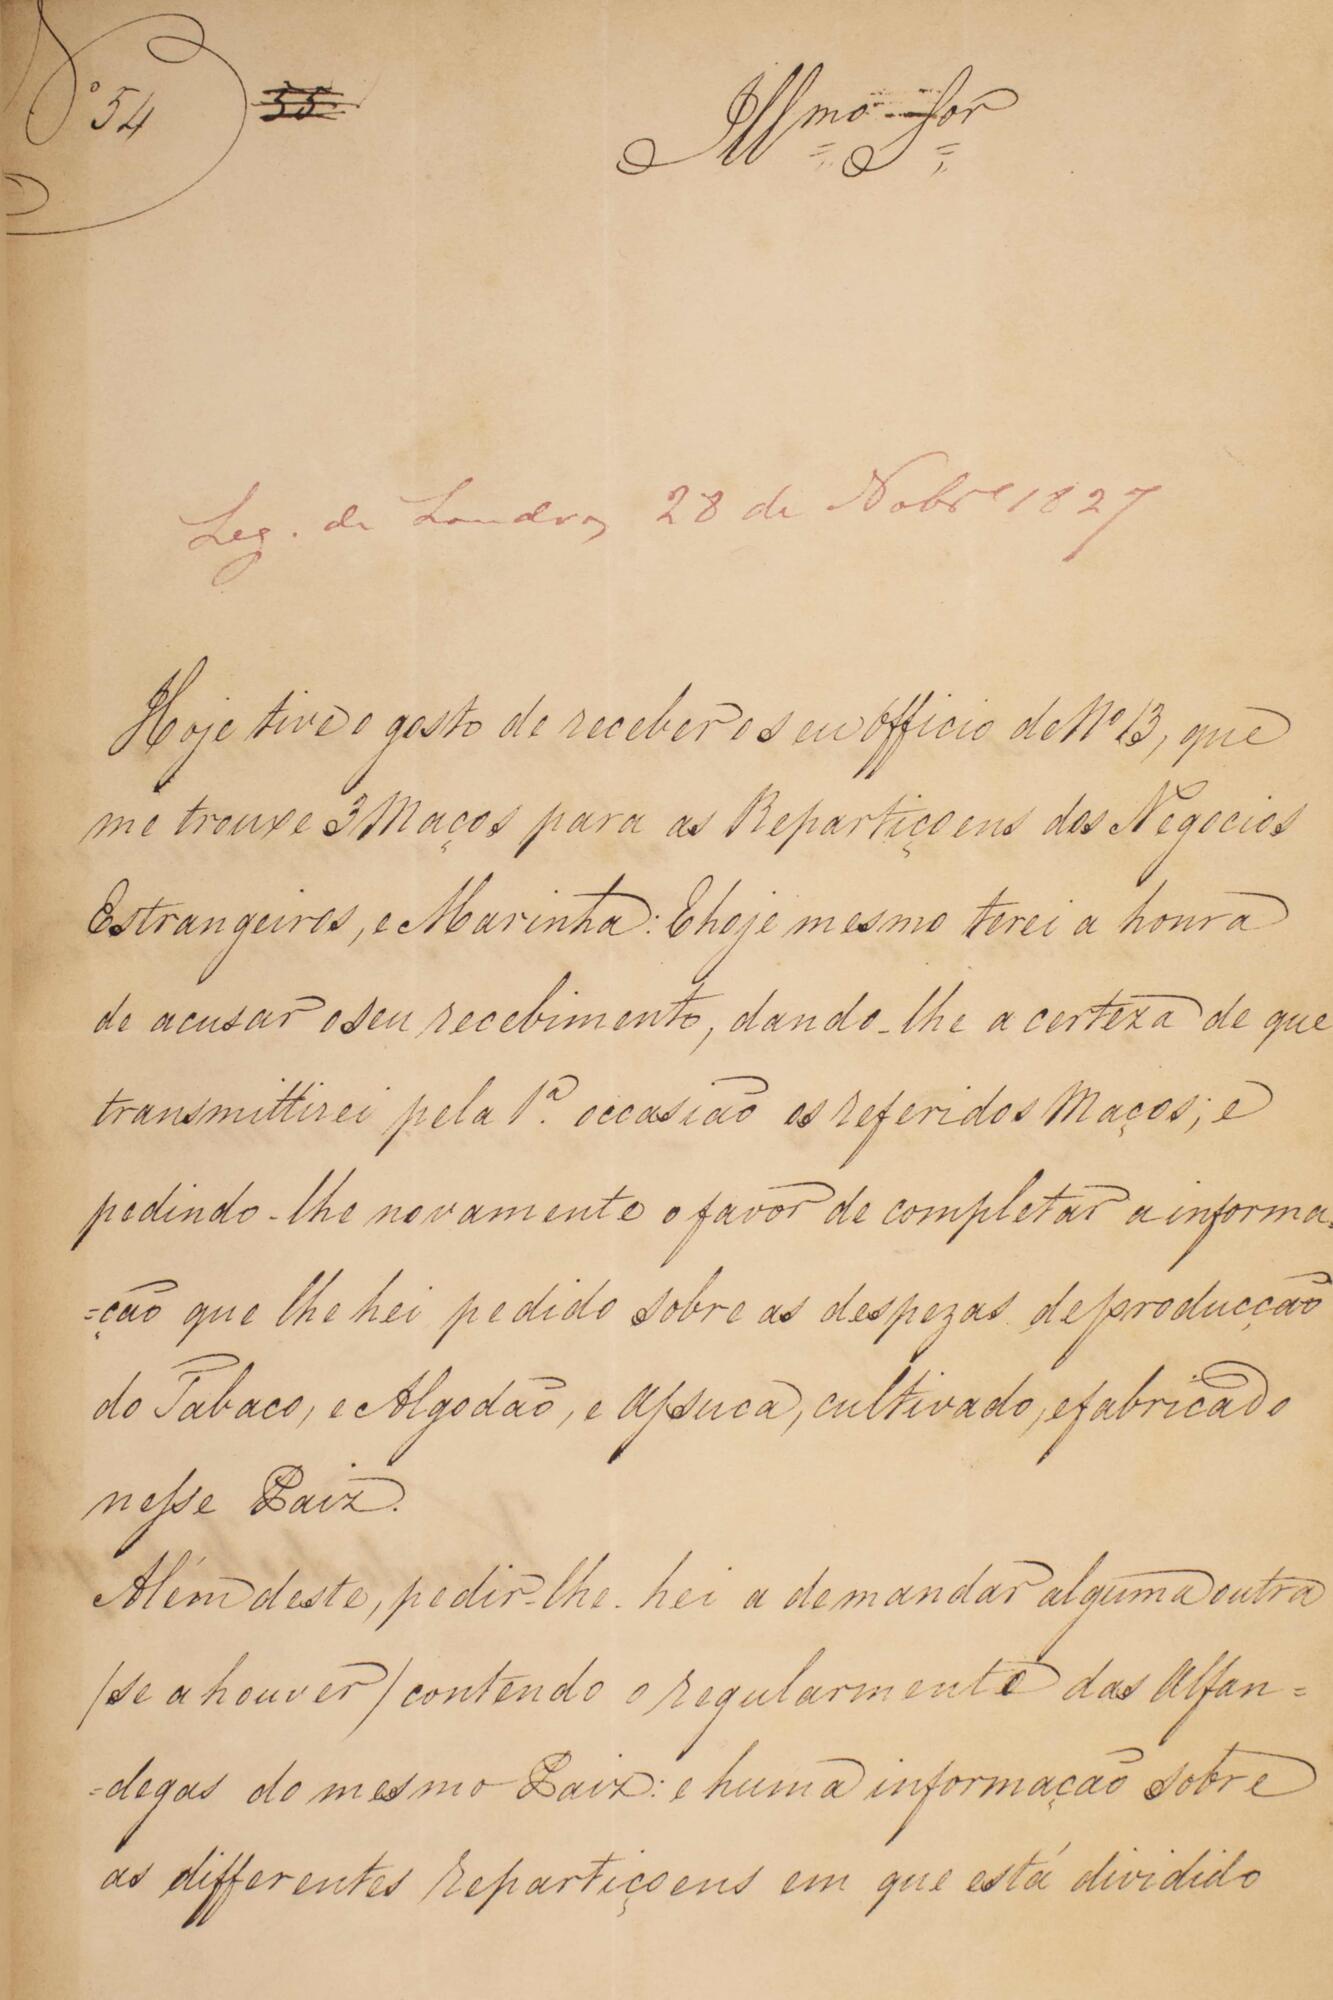 Nº 54 55
Illmo Snor
Leg. de Londres 28 de Nobre 1827
Hoje tive o gosto de receber o seu Officio de Nº 13, que
me trouxe 3 Maços para as Repartiçoens dos Negocios
Estrangeiros, e Marinha: E hoje mesmo terei a honra
de acusar o seu recebimento, dando-lhe a certeza de que
transmittirei pela 1ª. occasião os referidos Maços; e
pedindo-lhe novamente o favor de completar a informa=
=ção que lhe hei pedido sobre as despezas de producção
do Tabaco, e Algodão, e Assuca, cultivado, e fabricado
nesse Paiz.
Além deste, pedir-lhe-hei a demandar alguma outra
(se a houver) contendo o regularmente das Alfan=
=degas do mesmo Paiz: e huma informação sobre
as differentes repartiçoens em que está dividido